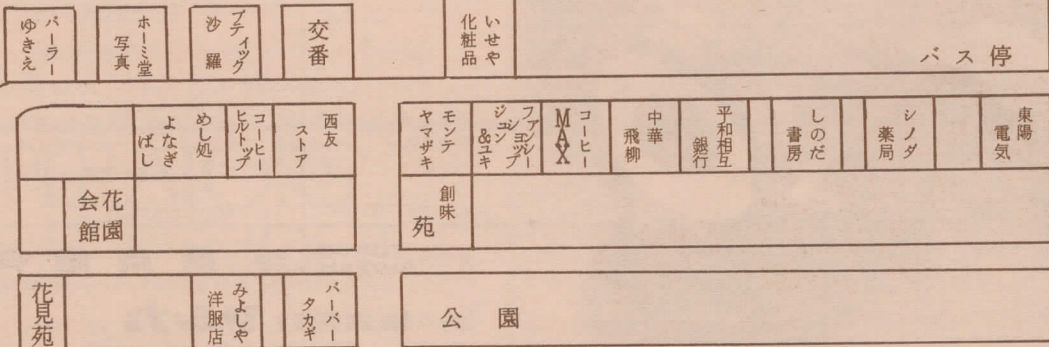 パーラー
ゆきえ
ホーミ堂
写真
ブティック
沙羅
交番
いせや
化粧品
バス停
めし処
よなぎ
ばし
コーヒー
ヒルトップ
西友
ストア
モンテ
ヤマザキ
ファンシー
ショップ
ジュン
&ユキ
コーヒー
MAX
中華
飛柳
平和相互
銀行
しのだ
書房
シノダ
薬局
東陽
電気
花園
会館
創味
苑
花見苑
みよしや
洋服店
バーバー
タカギ
公園